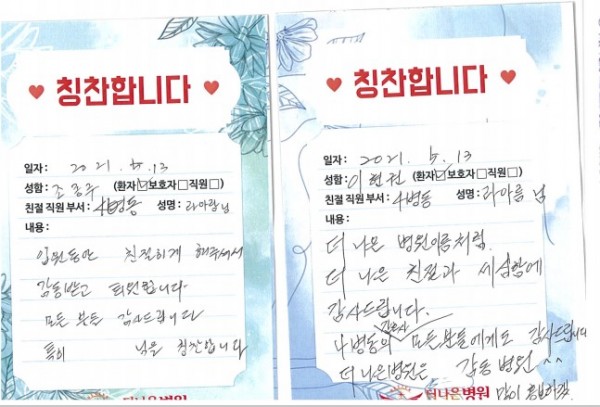 칭찬합니다
일자: 2021. 5. 13
성함: 조종우 (환자☑보호자☐직원☐)
친절 직원 부서: 4병동 성명: 라아름님
내용:
입원동안 친절하게 해주셔서
감동받고 퇴원합니다
모든 분들 감사드립니다
특히 님을 칭찬합니다
더나은병원
칭찬합니다
일자: 2021. 5. 13
성함: (환자☑보호자☐직원☐)
친절 직원 부서: 4병동 성명: 라아름 님
내용:
더 나은 병원이름처럼.
더 나은 친절과 세심함에
감사드립니다.
4병동의 간호사 모든분들에게도 감사드립니다
더 나은병원은 감동병원 ^^
더나은병원
많이